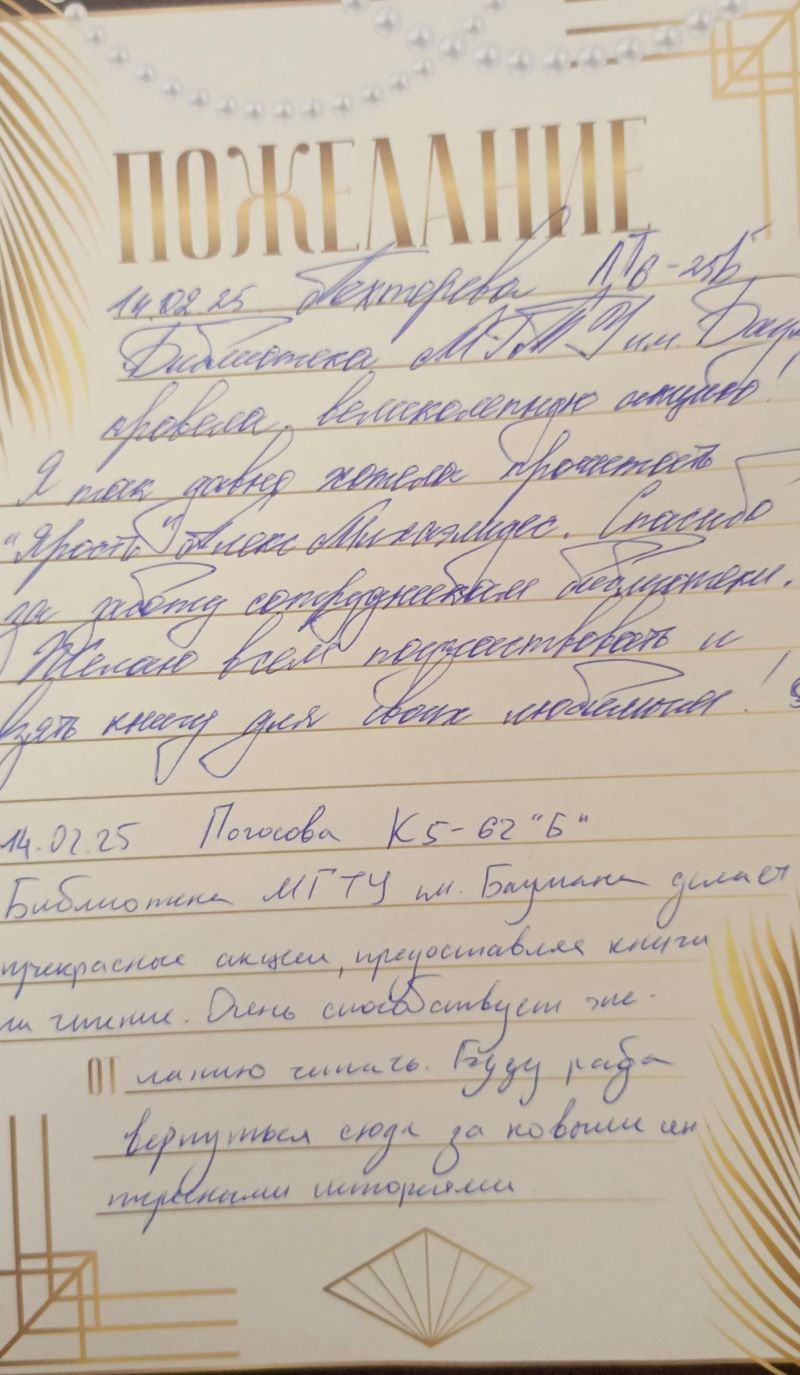 ПОЖЕЛАНИЕ
14.02.25. Пехтерева
Библиотека МГТУ им. Баум
провела великолепную акцию!
Я так давно хотела прочитать
"Ярость" Алекс Михаэлидес. Спасибо
за работу сотрудникам библиотеки.
Желаю всем поучаствовать и
взять книгу для своих любимых!
14.02.25 Погосова К5-62 "Б"
Библиотека МГТУ им. Баумана делает
прекрасные акции, предоставляя книги
чтение. Очень способствует же-
ОТ ланию читать. Буду рада
вернуться сюда за новыми ин
тересными историями.